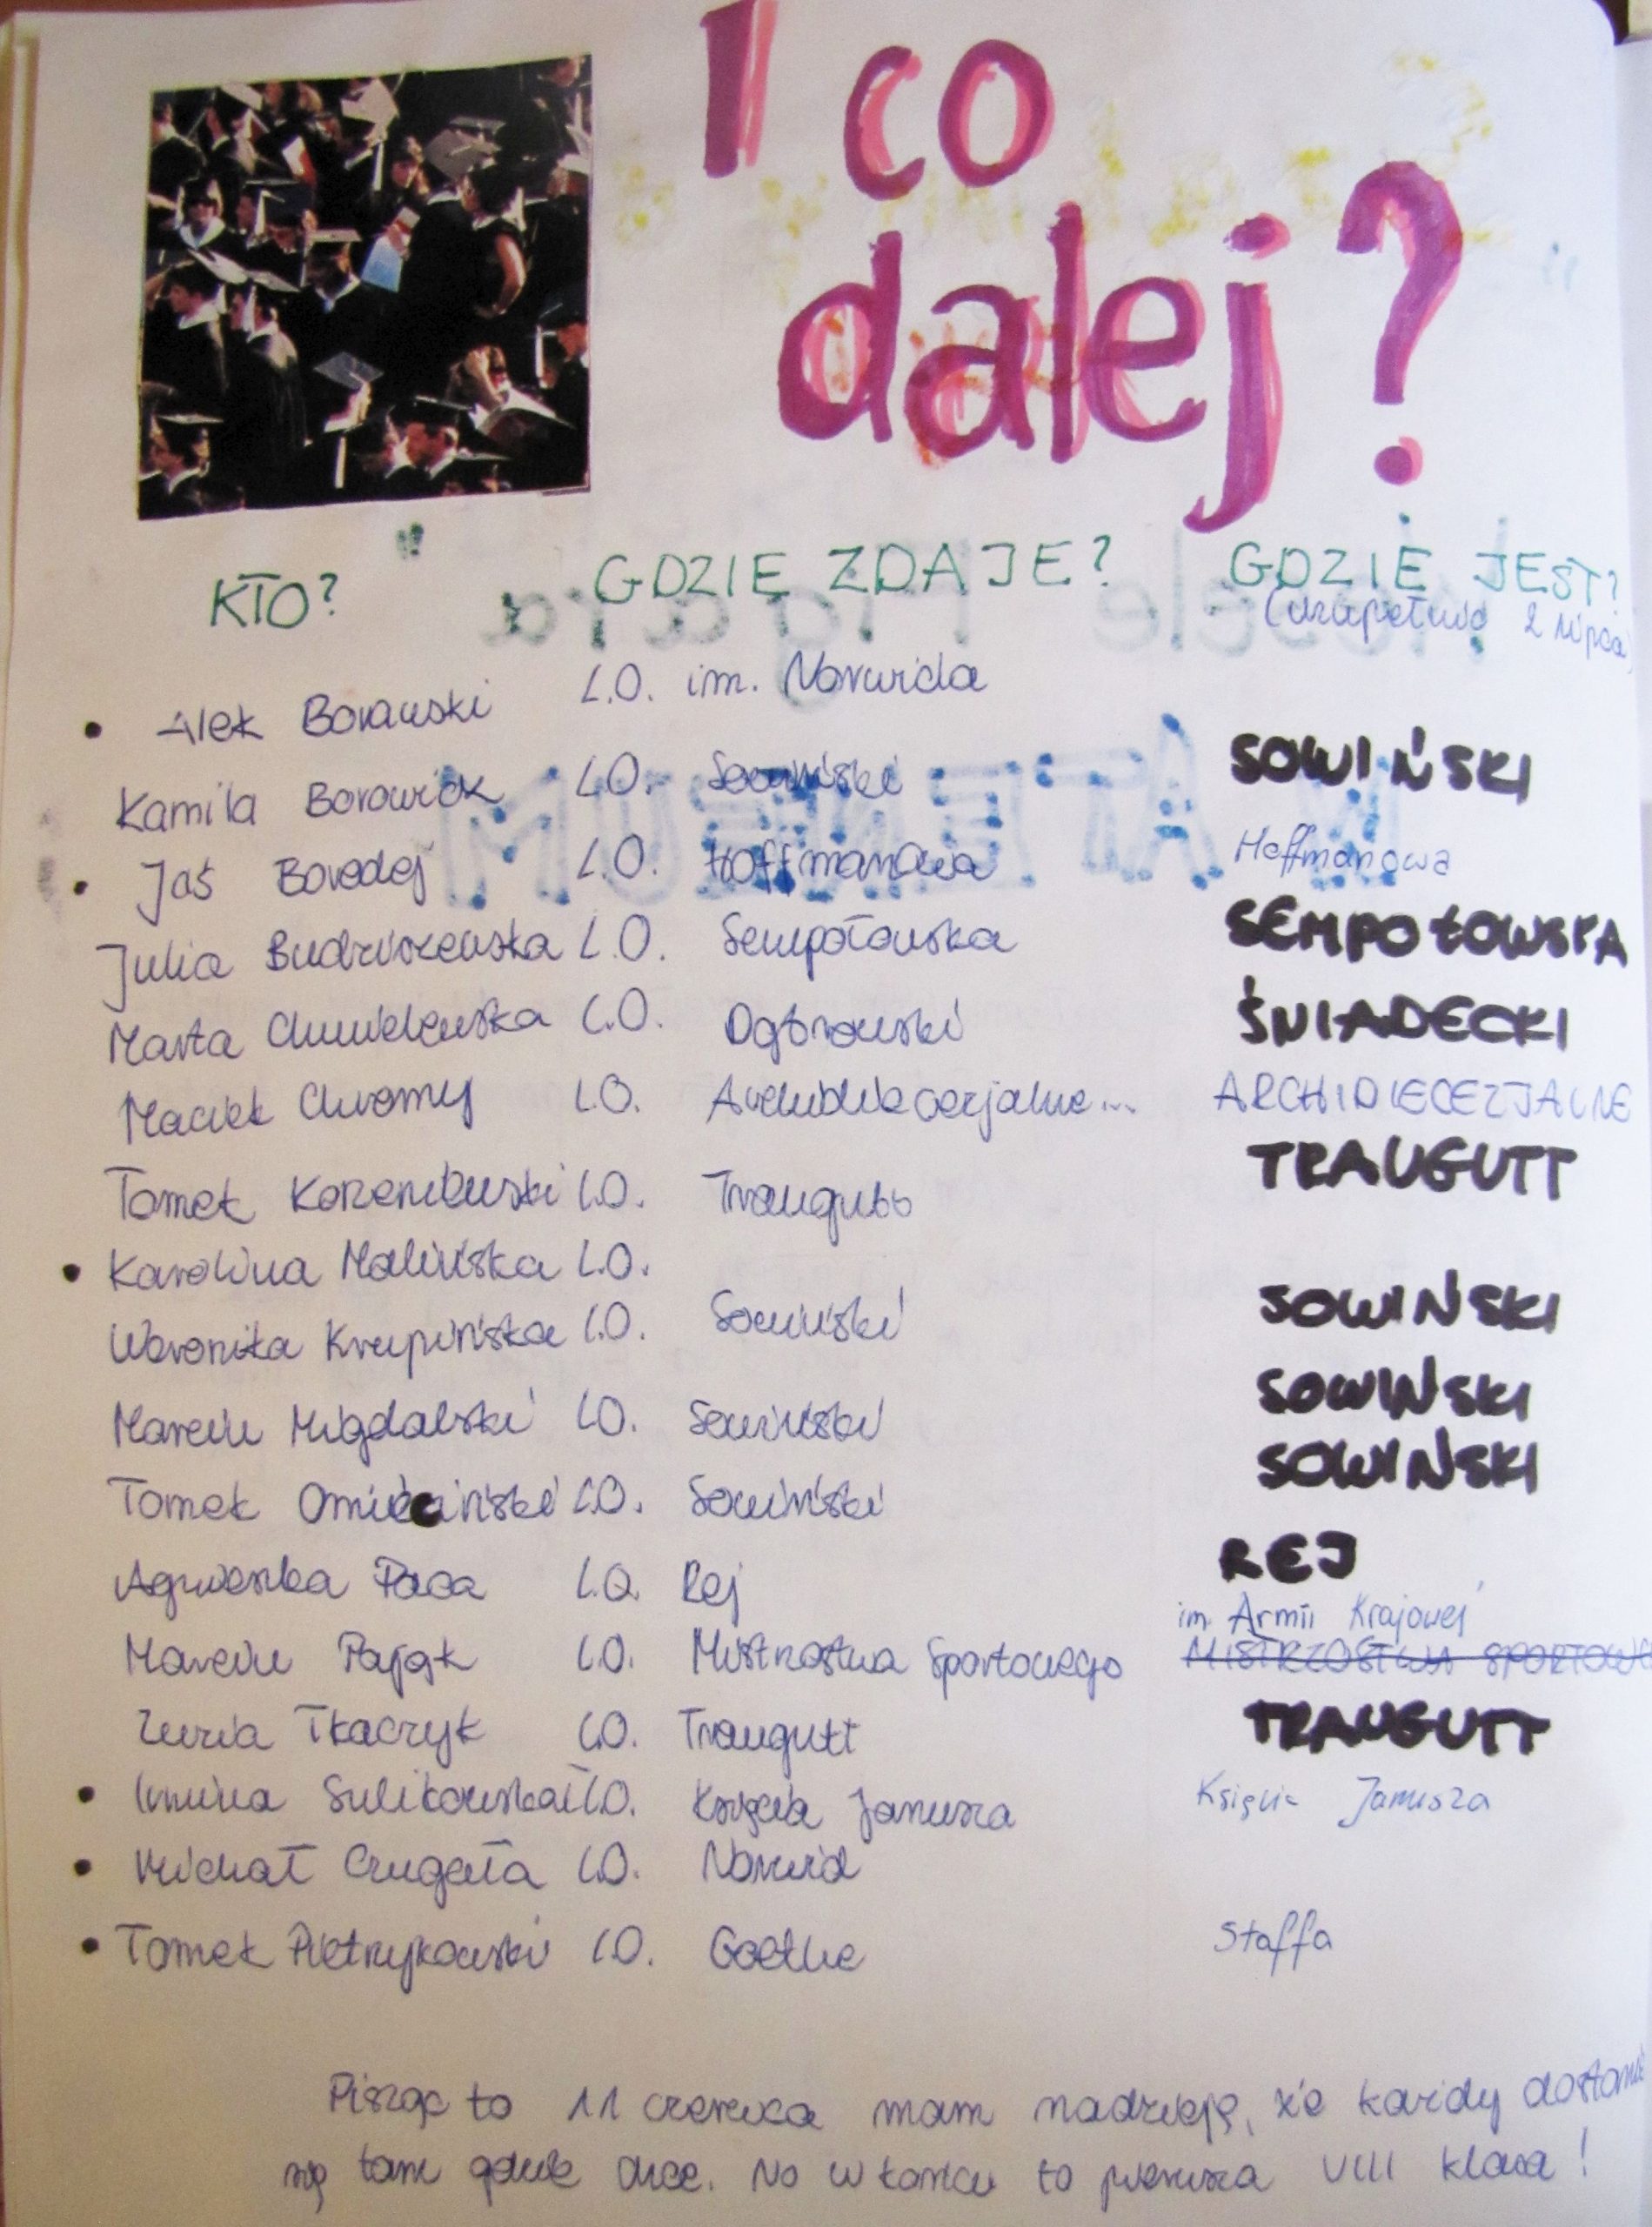 I co
dalej?
KTO? GDZIE ZDAJE? GDZIE JEST?
(uzupełnić 2 lipca)
Alek Borawski L.O. im. Norwida
Kamila Borowick L.O. Sowiński SOWIŃSKI
Jaś Borodej L.O. Hoffmanowa Hoffmanowa
Julia Budziszewska L.O. Sempołowska SEMPOŁOWSKA
Marta Chmielewska L.O. Dąbrowski ŚNIADECKI
Maciek Chromy L.O. Archidiecezjalne... ARCHIDIECEZJALNE
Tomek Korzeniewski L.O. Traugutt TRAUGUTT
Karolina Malińska L.O.
Weronika Krupińska L.O. Sowiński SOWIŃSKI
Marcin Migdalski L.O. Sowiński SOWIŃSKI
Tomek Omieciński L.O. Sowiński SOWIŃSKI
Agnieszka Paca L.O. Rej REJ
im. Armii Krajowej
Marcin Pająk L.O. Mistrzostwa Sportowego MISTRZOSTWA SPORTOW
Zuzia Tkaczyk L.O. Traugutt TRAUGUTT
Sulikowska L.O. Księcia Janusza Księcia Janusza
Michał Czugała L.O. Norwid
Tomek Pietrzykowski L.O. Goethe Staffa
Pisząc to 11 czerwca mam nadzieję, że każdy dostanie
się tam gdzie chce. No w końcu to pierwsza VIII klasa!